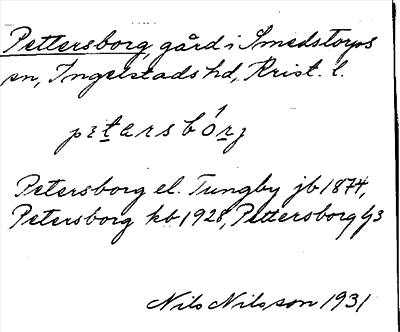 Pettersborg, gård i Smedstorps
sn, Ingelstads hd, Krist. l.
petersbórg
Petersborg el. Tungby jb 1874,
Petersborg kb 1928, Pettersborg
Nils Nilsson 1931